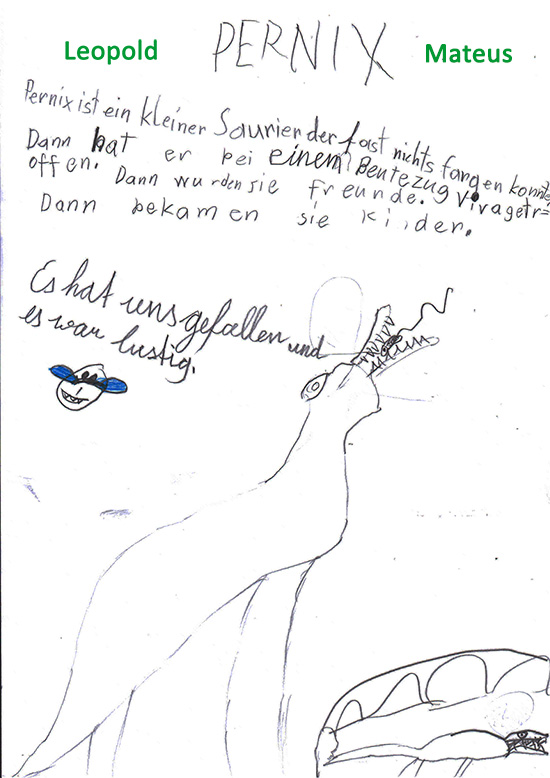 Leopold PERNIX Mateus
Pernix ist ein kleiner Saurier der fast nichts fangen konnte,
Dann hat er bei einem Beutezug Viragetr=
offen. Dann wurden sie freunde.
Dann bekamen sie Kinder.
Es hat uns gefallen und
es war lustig.